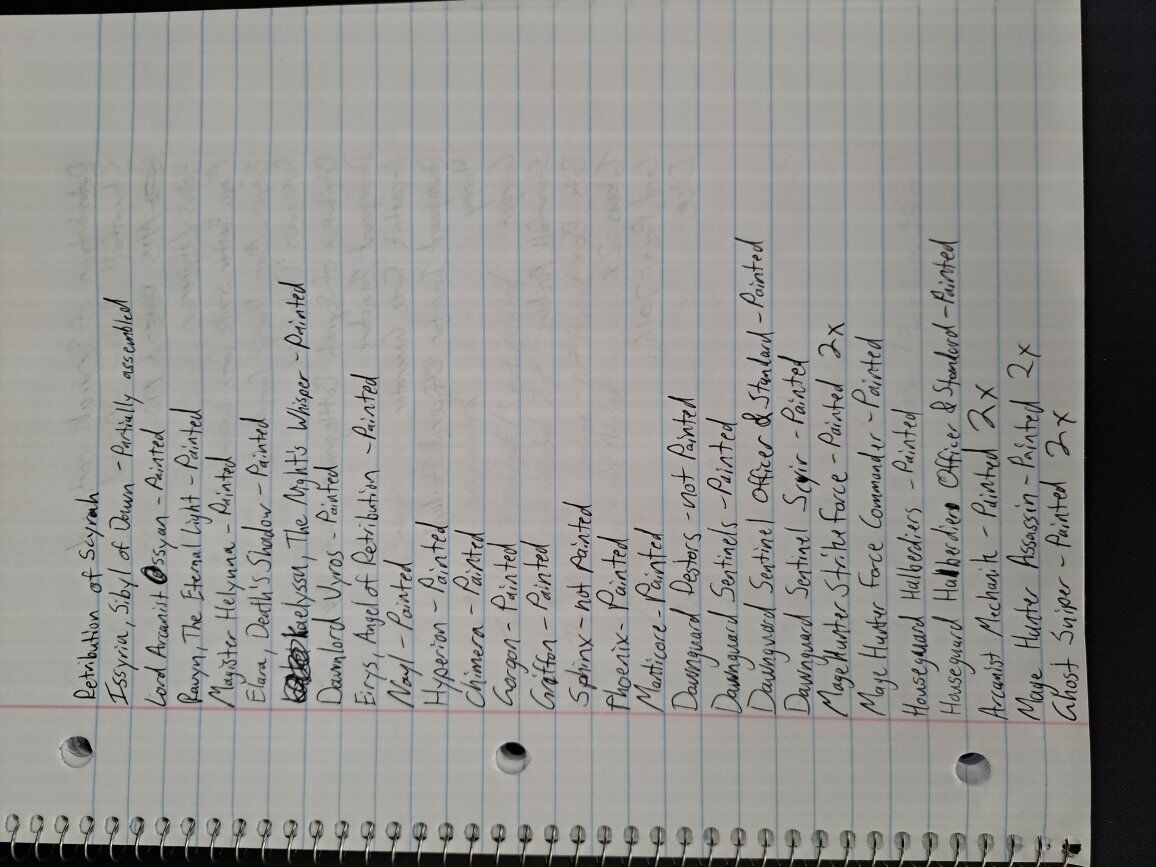 Retribution of Scyrah
Issyria, Sibyl of Dawn - Partially assembled
Lord Arcanist Ossyan - Painted
Ravyn, The Eternal Light - Painted
Magister Helynna - Painted
Elara, Death's Shadow - Painted
Kaelyssa, The Night's Whisper - Painted
Dawnlord Vyros - Painted
Eiryss, Angel of Retribution - Painted
Nayl - Painted
Hyperion - Painted
Chimera - Painted
Gorgon - Painted
Griffon - Painted
Sphinx - not painted
Phoenix - Painted
Manticore - Painted
Dawnguard Destors - not Painted
Dawnguard Sentinels - Painted
Dawnguard Sentinel Officer & Standard - Painted
Dawnguard Sentinel Scyir - Painted
Mage Hunter Strike Force - Painted 2x
Mage Hunter Force Commander - Painted
Houseguard Halbediers - Painted
Houseguard Halberdier Officer & Standard - Painted
Arcanist Mechanik - Painted 2x
Mage Hunter Assassin - Painted 2x
Ghost Sniper - Painted 2x